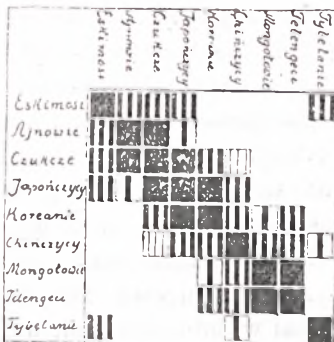 Eskimosi Ajnowie Czukcze Japończycy Koreanie Chińczycy Mongołowie Telengeci Tybetanie
Eskimosi
Ajnowie
Czukcze
Japończycy
Koreanie
Chińczycy
Mongołowie
Telengeci
Tybetanie